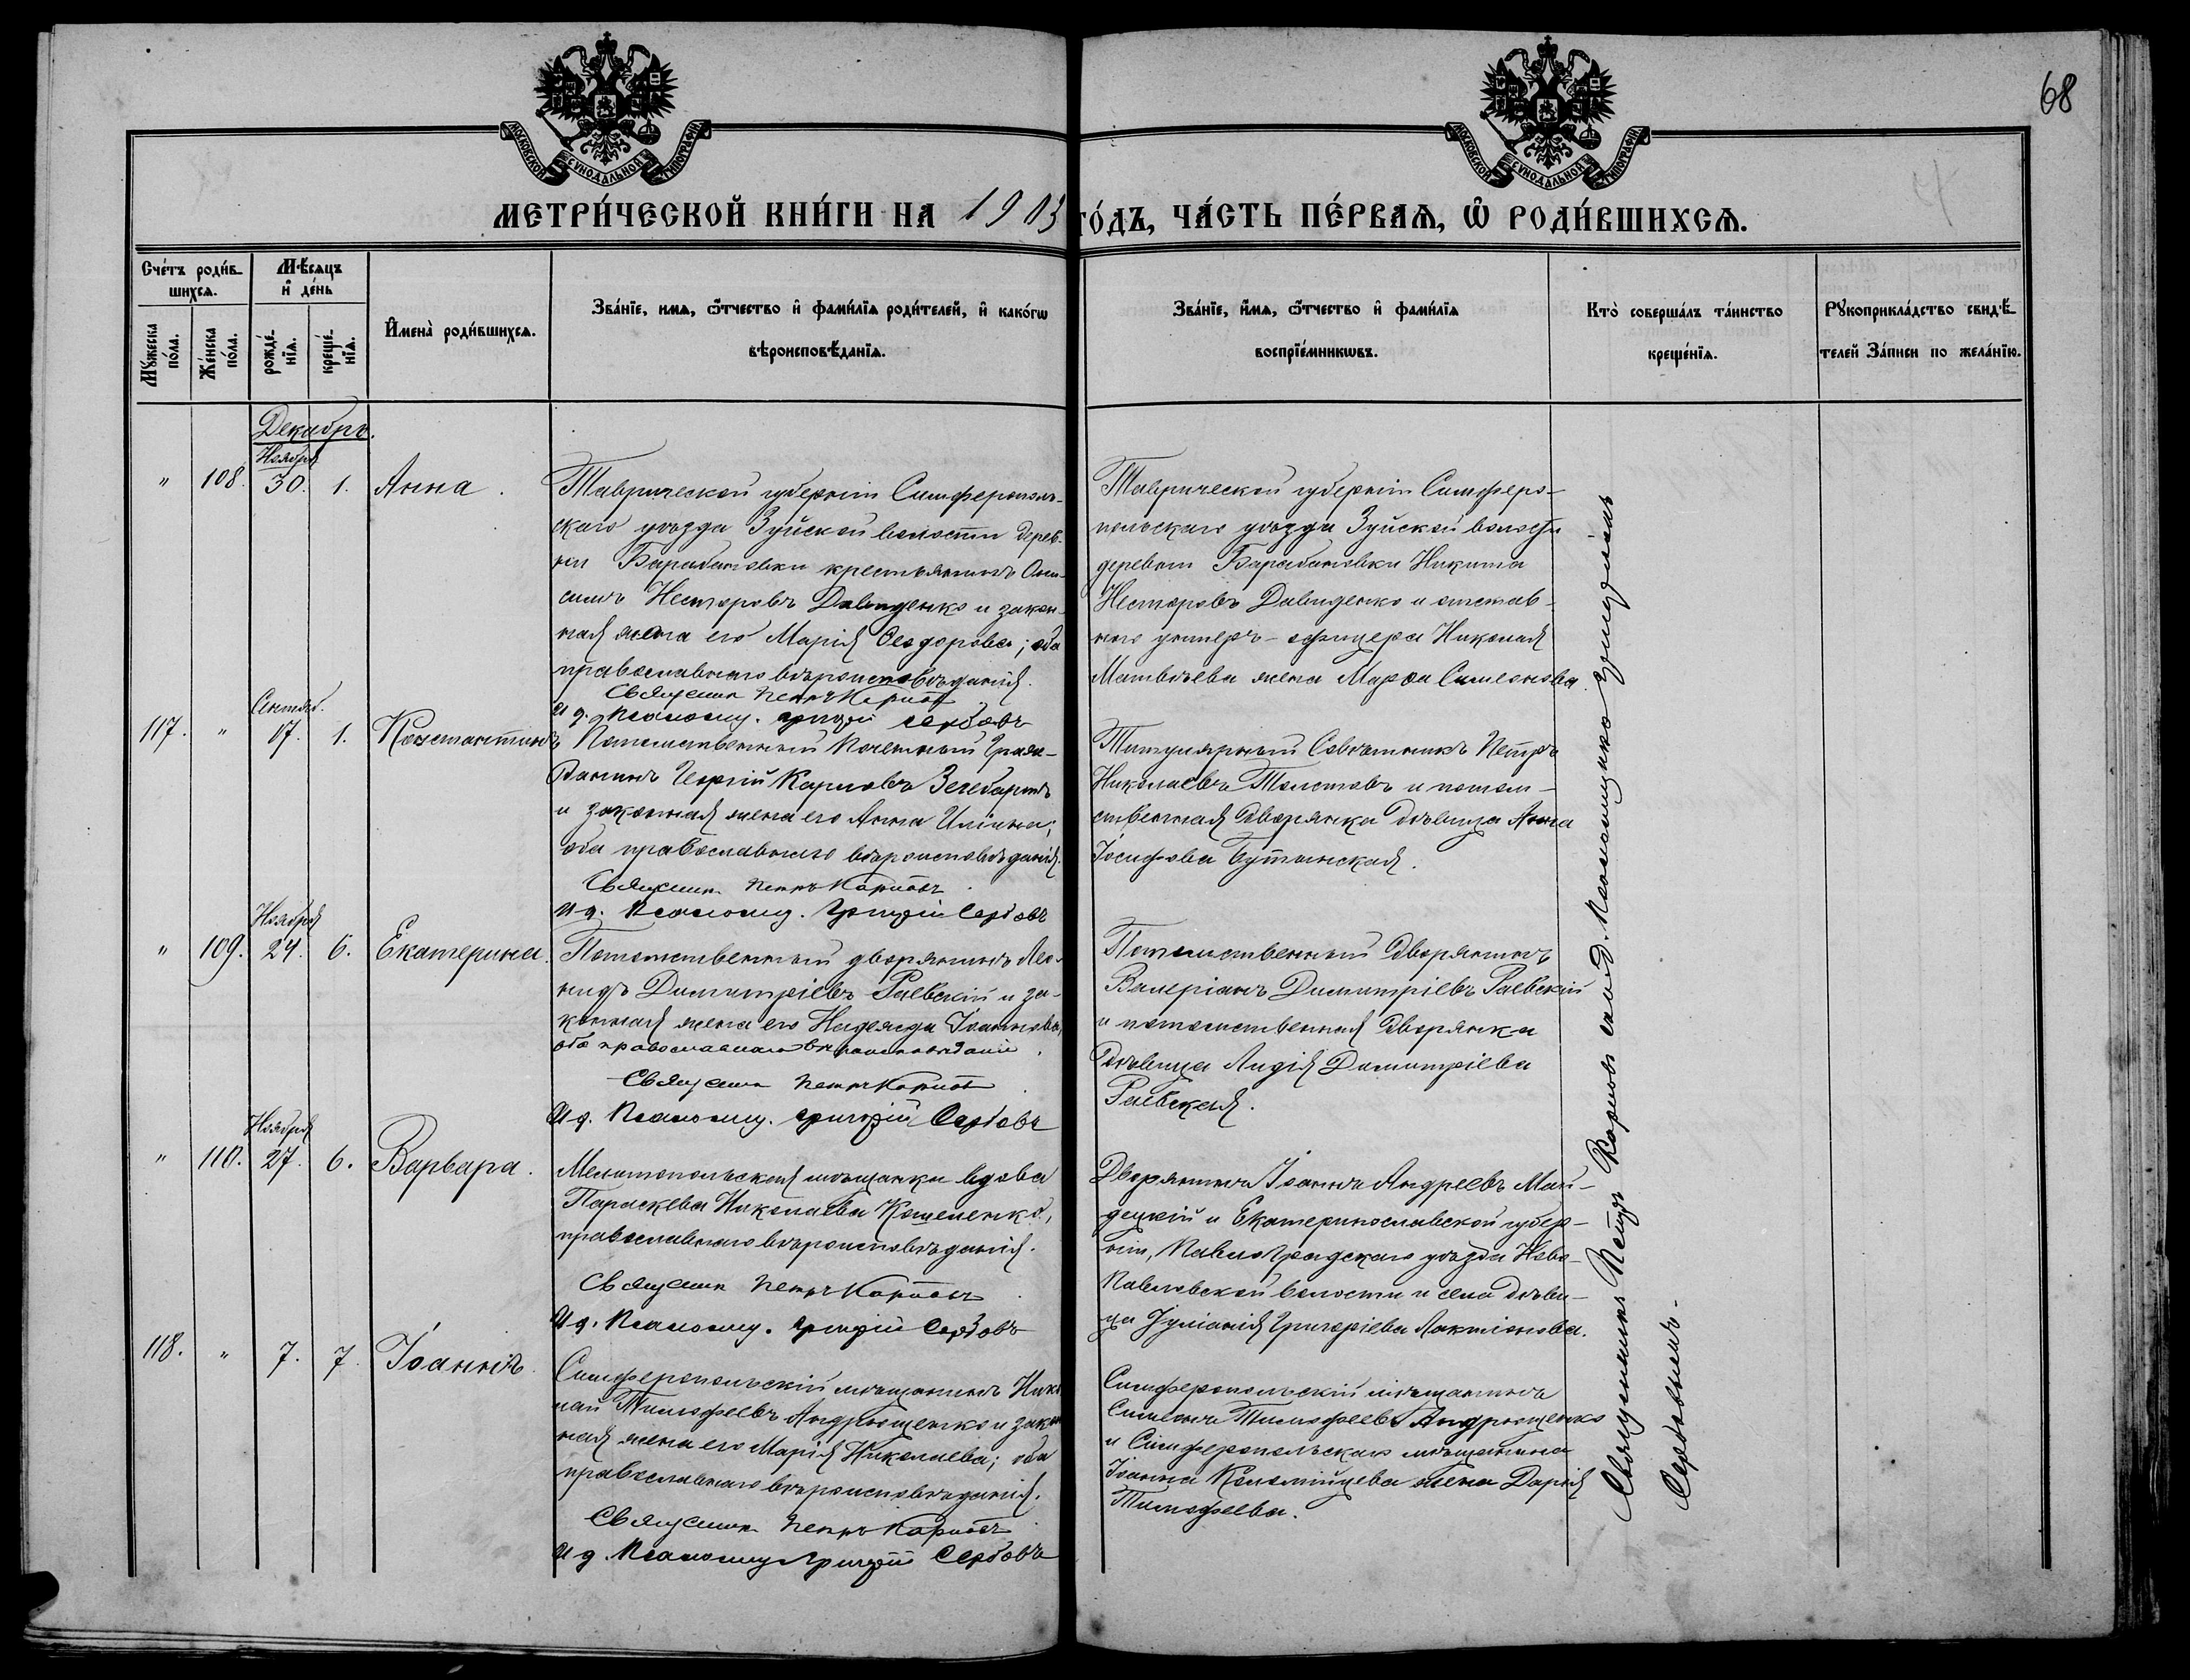 68
МОСКОВСКОЙ СУНОДАЛЬНОЙ ТИПОГРАФІИ
МОСКОВСКОЙ СУНОДАЛЬНОЙ ТИПОГРАФІИ
МЕТРИ́ЧЕСКОЙ КНИ́ГИ НА 1903 ГО́ДЪ, ЧА́СТЬ ПЕ́РВАѦ, Ѽ РОДИ́ВШИХСѦ.
Сче́тъ роди́в-
шихсѧ.
Мѣ́сѧцъ
и҆ де́нь
Мꙋ́жеска
по́ла.
Же́нска
по́ла.
рожде́-
нїѧ.
креще́-
нїѧ.
И҆мена̀ роди́вшихсѧ.
Зва́нїе, имѧ, ѻ҆́тчество и҆ фами́лїѧ роди́телей, и҆ како́гѡ
вѣроисповѣ́данїѧ.
Зва́нїе, и҆́мѧ, ѻ҆́тчество и҆ фами́лїѧ
воспрїе́мникѡвъ.
Кто̀ соверша́лъ та́инство
креще́нїѧ.
Рꙋкоприкла́дство свидѣ́-
телей За́писи по жела́нїю.
Декабрь.
Ноября
" 108. 30. 1. Анна.
Таврической губерніи Симферополь-
скаго уѣзда Зуйской волости дерев-
ни Барабановки крестьянинъ Они-
симъ Несторовъ Давиденко и закон-
ная жена его Марія Ѳеодорова; оба
православнаго вѣроисповѣданія.
Священник Петръ Карпов
И д. Псаломщ. Григорій Сербовъ
Таврической губерніи Симферо-
польскаго уѣзда Зуйской волости
деревни Барабановки Никита
Несторовъ Давиденко и отстав-
наго унтеръ-офицера Николая
Матвѣева жена Марѳа Симеонова.
117. " 17. 1. Константинъ
Потомственный Почетный Граж-
данинъ Георгій Карповъ
и законная жена его Анна Иліина;
оба православнаго вѣроисповѣданія.
Священник Петръ Карповъ
И д. Псаломщ. Григорій Сербовъ
Титулярный Совѣтникъ Петръ
Николаевъ Толстовъ и потом-
ственная дворянка дѣвица Анна
Іосифова
Ноября
" 109. 24. 6. Екатерина.
Потомственный дворянинъ Лео-
нидъ Димитріевъ Раевскій и за-
конная жена его Надежда Іоаннова,
оба православнаго вѣроисповѣданія.
Священник Петръ Карпов
И д. Псаломщ. Григорій Сербовъ
Потомственный дворянинъ
Валеріанъ Димитріевъ Раевскій
и потомственная дворянка
дѣвица Лидія Димитріева
Раевская.
Ноября
" 110. 27. 6. Варвара.
Мелитопольская мѣщанка вдова
Параскева Николаева Кошеленко,
православнаго вѣроисповѣданія.
Священник Петръ Карповъ
И д. Псаломщ. Григорій Сербовъ
Дворянинъ Іоаннъ Андреевъ Май-
децкій и Екатеринославской губер-
ніи, Павлоградскаго уѣзда Ново-
Павловской волости и села дѣви-
ца Іуліанія Григоріева Лактіонова.
118. " 7. 7. Іоаннъ.
Симферопольскій мѣщанинъ Нико
лай Тимофеевъ Андрющенко и закон
ная жена его Марія Николаева; оба
православнаго вѣроисповѣданія.
Священник Петръ Карповъ
И д. Псаломщ Григорій Сербовъ
Симферопольскій мѣщанинъ
Симеонъ Тимофеевъ Андрющенко
и Симферопольскаго мѣщанина
Іоанна Коломійцева жена Дарія
Тимофеева.
Священникъ Петръ Карповъ съ и. д. Псаломщика Григоріемъ
Сербовымъ.